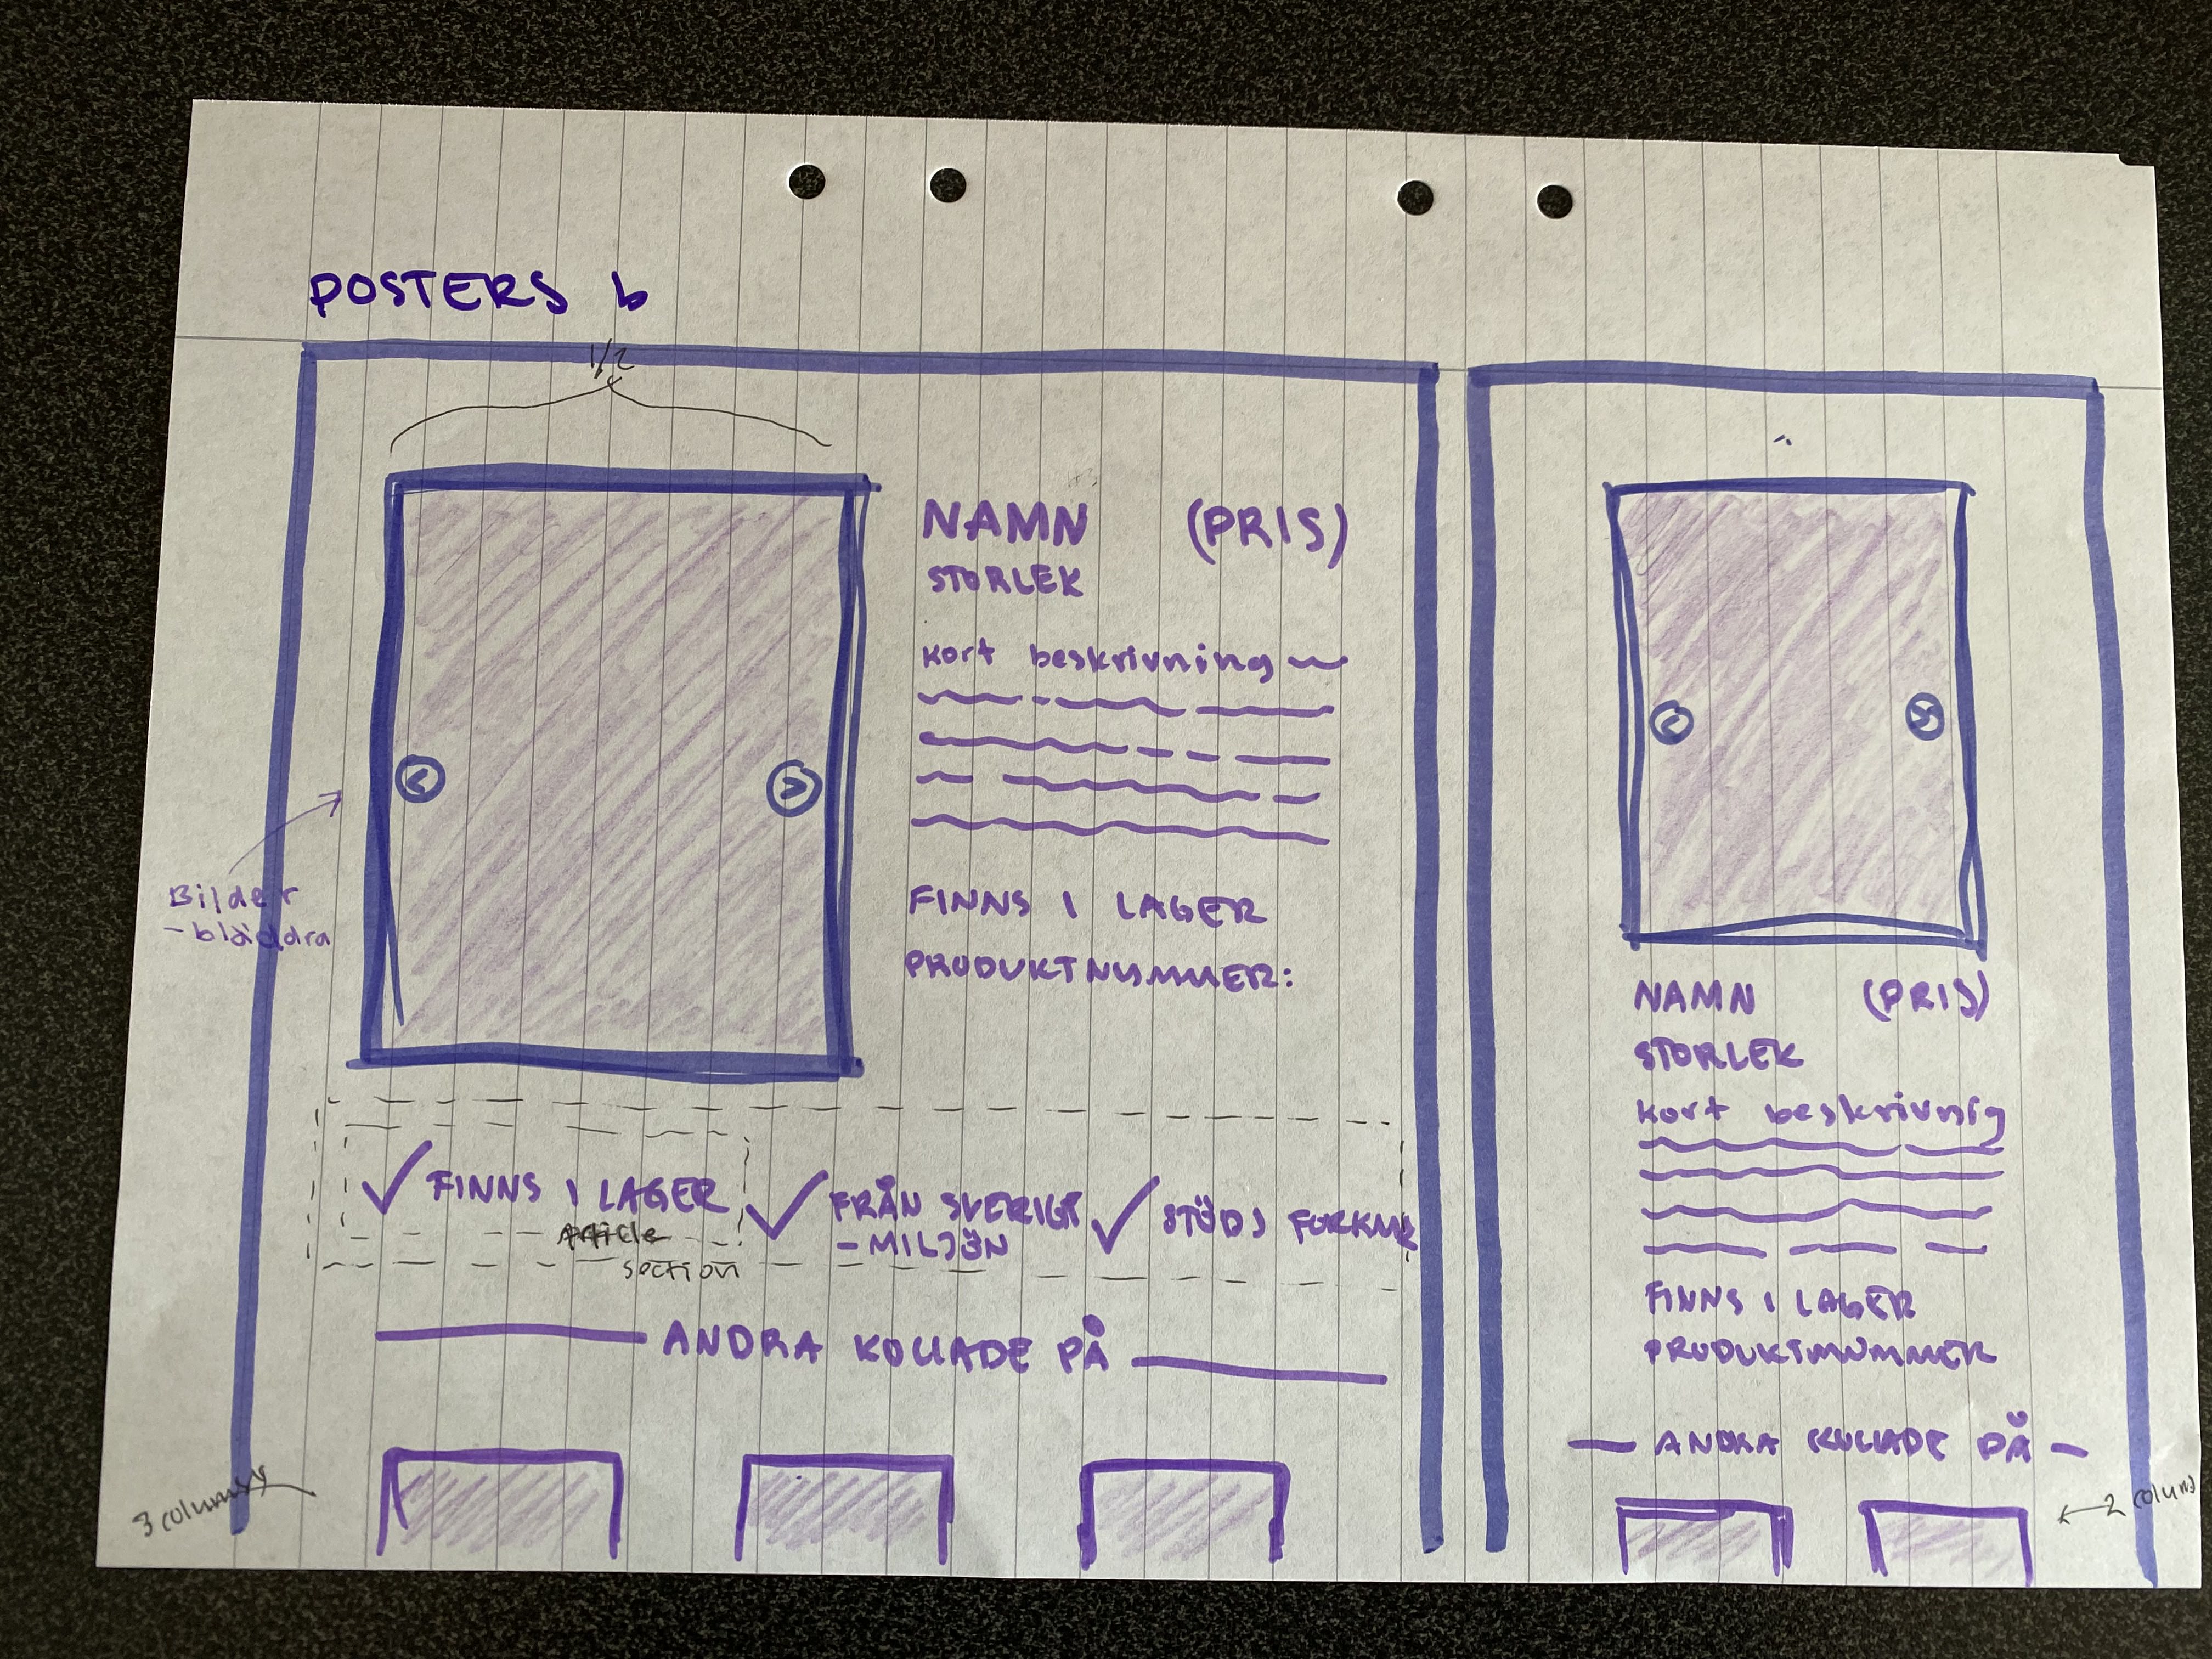 POSTERS b
1/2
Bilder
- bläddra
NAMN (PRIS)
STORLEK
Kort beskrivning
FINNS I LAGER
PRODUKTNUMMER:
✓ FINNS I LAGER ✓ FRÅN SVERIGE ✓ STÖDJ
- MILJÖN
Article
section
ANDRA KOLLADE PÅ
3 columns
NAMN (PRIS)
STORLEK
Kort beskrivning
FINNS I LAGER
PRODUKTNUMMER
- ANDRA KOLLADE PÅ -
← 2 column